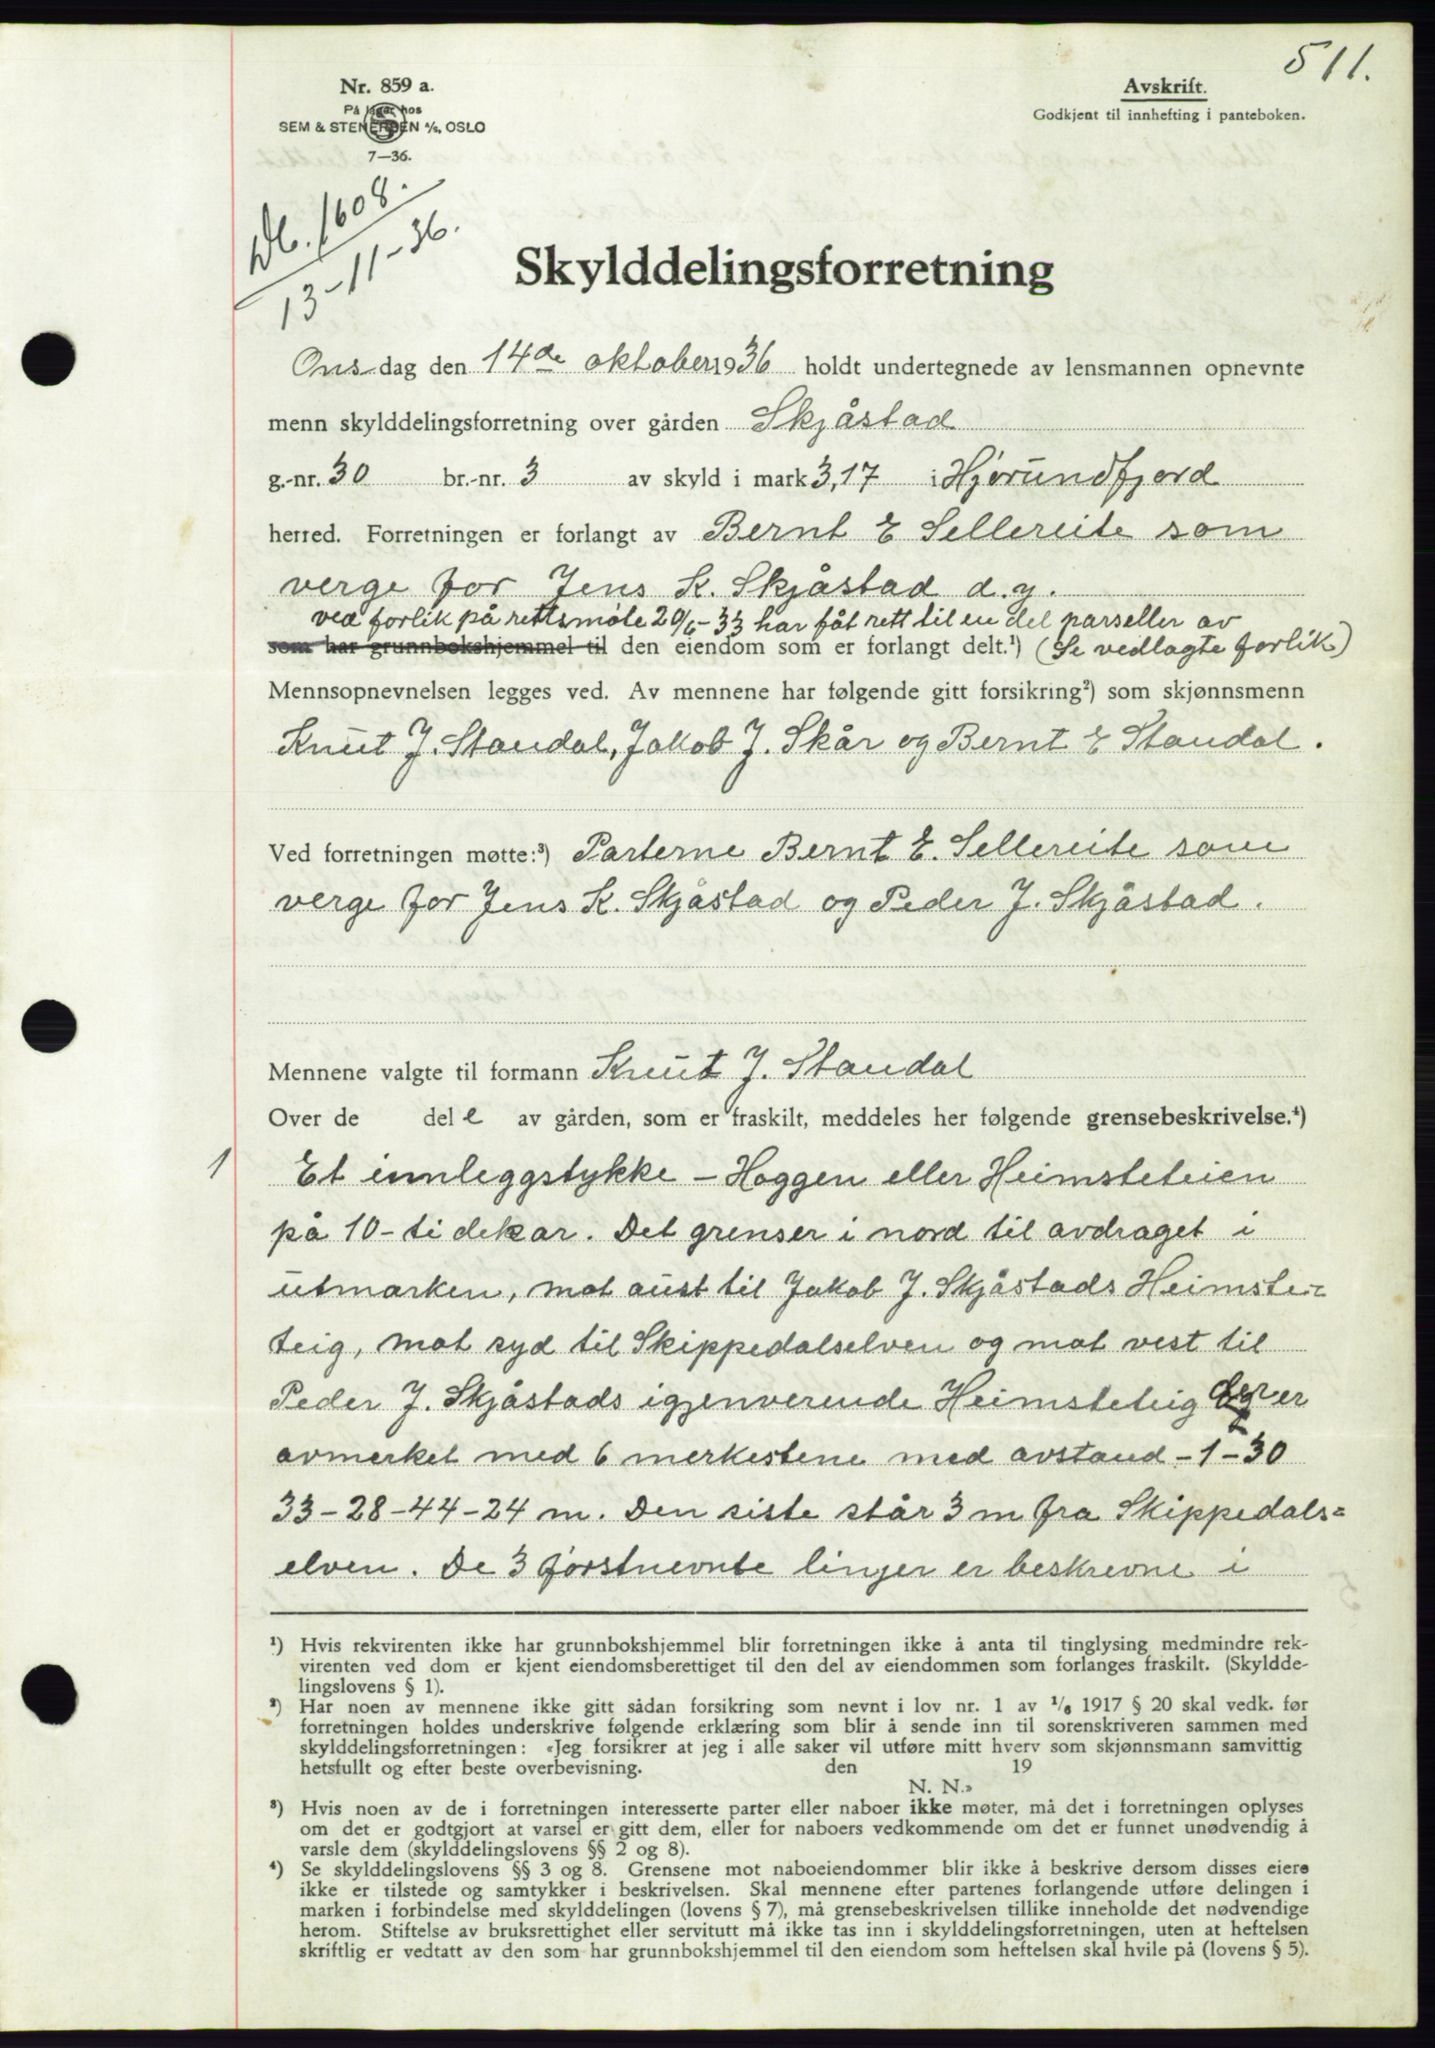 511.
Nr. 859 a.
På lager hos
SEM & STENERSEN A/S, OSLO
7—36.
Avskrift.
Godkjent til innhefting i panteboken.
Db. 1608.
13-11-36.
Skylddelingsforretning
Onsdag den 14de oktober 1936 holdt undertegnede av lensmannen opnevnte
menn skylddelingsforretning over gården Skjåstad
g.-nr. 30 br.-nr. 3 av skyld i mark 3,17 i Hjørundfjord
herred. Forretningen er forlangt av Bernt E Sellereite som
verge for Jens K. Skjåstad d.y.
ved forlik på rettsmøte 20/6-33 har fåt rett til en del parseller av
som har grunnbokshjemmel til den eiendom som er forlangt delt.¹) (Se vedlagte forlik)
Mennsopnevnelsen legges ved. Av mennene har følgende gitt forsikring²) som skjønnsmenn
Knut J. Standal, Jakob J. Skår og Bernt E Standal.
Ved forretningen møtte:³) Parterne Bernt E. Sellereite som
verge for Jens K. Skjåstad og Peder J. Skjåstad.
Mennene valgte til formann Knut J. Standal
Over de del e av gården, som er fraskilt, meddeles her følgende grensebeskrivelse.⁴)
1 Et innleggstykke – Hoggen eller Heimsteteien
på 10 - ti dekar. Det grenser i nord til avdraget i
utmarken, mot aust til Jakob J. Skjåstads Heimste=
teig, mot syd til Skippedalselven og mot vest til
Peder J. Skjåstads igjenverende Heimsteteig der er
avmerket med 6 merkestene med avstand - 1 - 30
33 - 28 - 44 - 24 m. Den siste står 3 m fra Skippedals=
elven. De 3 førstnevnte linjer er beskrevne i
¹) Hvis rekvirenten ikke har grunnbokshjemmel blir forretningen ikke å anta til tinglysing medmindre rek-
virenten ved dom er kjent eiendomsberettiget til den del av eiendommen som forlanges fraskilt. (Skyldde-
lingslovens § 1).
²) Har noen av mennene ikke gitt sådan forsikring som nevnt i lov nr. 1 av ¹/₆ 1917 § 20 skal vedk. før
forretningen holdes underskrive følgende erklæring som blir å sende inn til sorenskriveren sammen med
skylddelingsforretningen: «Jeg forsikrer at jeg i alle saker vil utføre mitt hverv som skjønnsmann samvittig
hetsfullt og efter beste overbevisning. den 19
N. N.»
³) Hvis noen av de i forretningen interesserte parter eller naboer ikke møter, må det i forretningen oplyses
om det er godtgjort at varsel er gitt dem, eller for naboers vedkommende om det er funnet unødvendig å
varsle dem (skylddelingslovens §§ 2 og 8).
⁴) Se skylddelingslovens §§ 3 og 8. Grensene mot naboeiendommer blir ikke å beskrive dersom disses eiere
ikke er tilstede og samtykker i beskrivelsen. Skal mennene efter partenes forlangende utføre delingen i
marken i forbindelse med skylddelingen (lovens § 7), må grensebeskrivelsen tillike inneholde det nødvendige
herom. Stiftelse av bruksrettighet eller servitutt må ikke tas inn i skylddelingsforretningen, uten at heftelsen
skriftlig er vedtatt av den som har grunnbokshjemmel til den eiendom som heftelsen skal hvile på (lovens § 5).